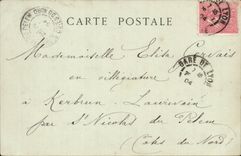 CARTE POSTALE
Mademoiselle Elisa Cervais
en villégiature
à Kerbrun, Laurivain
par St Nicolas du Pelem
(Côtes du Nord)
GARE DE LYON
04